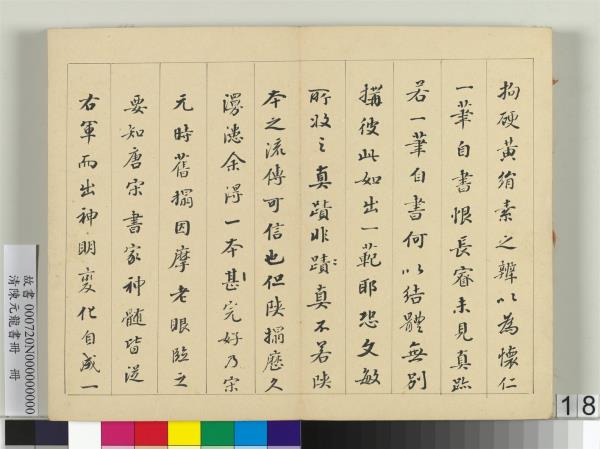 拘硬黃絹素之辨以為懷仁
一筆自書恨長睿未見真跡
若一筆自書何以結體無別
搆彼此如出一範耶恐文敏
所收之真蹟非蹟真不若陝
本之流傳可信也但陝搨歷久
漫漶余得一本甚完好乃宋
元時舊搨因摩老眼臨之
要知唐宋書家神髓皆從
右軍而出神明變化自成一
故書 000720N000000000
清陳元龍書冊 冊
18